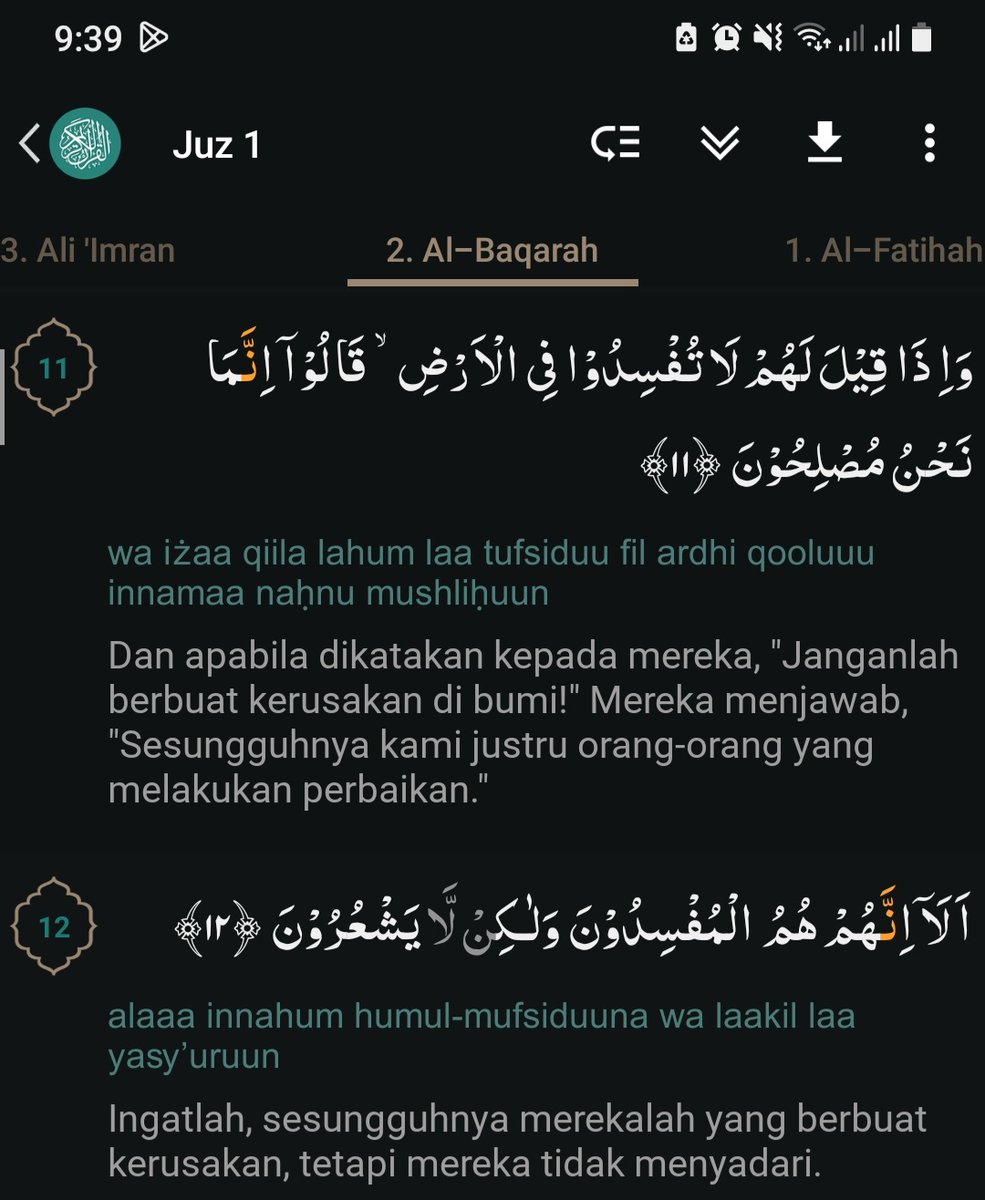 9:39
Juz 1
3. Ali 'Imran 2. Al-Baqarah 1. Al-Fatihah
11
وَاِذَا قِيْلَ لَهُمْ لَا تُفْسِدُوْا فِى الْاَرْضِ ۙ قَالُوْٓا اِنَّمَا
نَحْنُ مُصْلِحُوْنَ ﴿١١﴾
wa iżaa qiila lahum laa tufsiduu fil ardhi qooluuu
innamaa naḥnu mushliḥuun
Dan apabila dikatakan kepada mereka, "Janganlah
berbuat kerusakan di bumi!" Mereka menjawab,
"Sesungguhnya kami justru orang-orang yang
melakukan perbaikan."
12
اَلَآ اِنَّهُمْ هُمُ الْمُفْسِدُوْنَ وَلٰكِنْ لَّا يَشْعُرُوْنَ ﴿١٢﴾
alaaa innahum humul-mufsiduuna wa laakil laa
yasy’uruun
Ingatlah, sesungguhnya merekalah yang berbuat
kerusakan, tetapi mereka tidak menyadari.